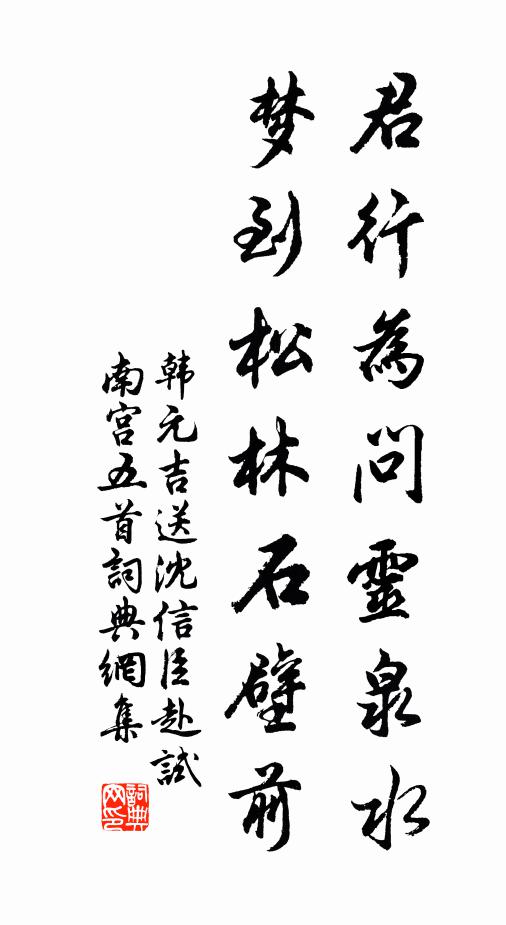 君行為问靈泉水
梦到松林石壁前
韩元吉送沈信臣赴試
南宫五首詞典網集
詞典网印